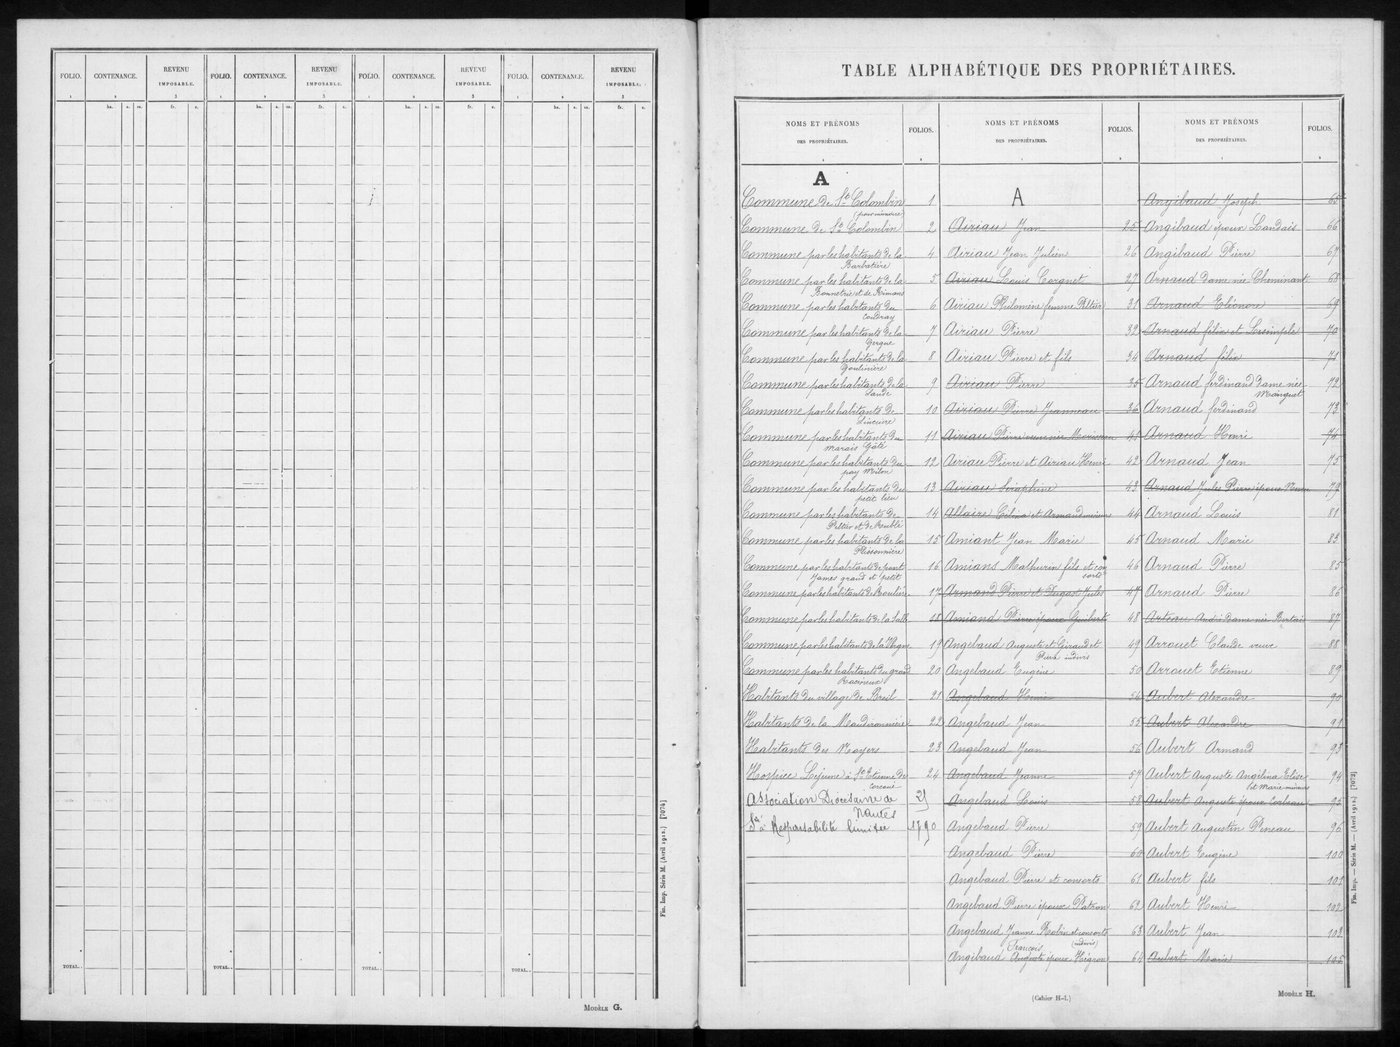 FOLIO. CONTENANCE. REVENU IMPOSABLE. FOLIO. CONTENANCE. REVENU IMPOSABLE. FOLIO. CONTENANCE. REVENU IMPOSABLE. FOLIO. CONTENANCE. REVENU IMPOSABLE.
1 2 3 1 2 3 1 2 3 1 2 3
ha. a. ca. fr. c. ha. a. ca. fr. c. ha. a. ca. fr. c. ha. a. ca. fr. c.
TOTAL. TOTAL. TOTAL. TOTAL.
Fin. Imp. Série M. (Avril 1912.) [7074]
MODÈLE G.
TABLE ALPHABÉTIQUE DES PROPRIÉTAIRES.
NOMS ET PRÉNOMS
DES PROPRIÉTAIRES.
FOLIOS.
A
Commune de St Colombin 1
(pour mémoire)
Commune de St Colombin 2
Commune par les habitants de la 4
Barbatière
Commune par les habitants de la 5
Bonnetrie et de Rimans
Commune par les habitants du 6
Coudray
Commune par les habitants de la 7
Commune par les habitants de la 8
Goutinière
Commune par les habitants de la 9
Lande
Commune par les habitants de 10
Commune par les habitants du 11
marais Gâté
Commune par les habitants du 12
pay Milon
Commune par les habitants du 13
petit lieu
Commune par les habitants de 14
Peltier et de
Commune par les habitants de la 15
Plissonnière
Commune par les habitants de pont 16
James grand et petit
Commune par les habitants de 17
Commune par les habitants de la Salle 18
Commune par les habitants de la Vergne 19
Commune par les habitants du grand 20
Racineux
Habitants du village de Breil 21
Habitants de la 22
Habitants des Noyers 23
Hospice Lejeune à St Etienne de 24
Corcoué
Association Diocésaine de 25
Nantes
Sté à Responsabilité limitée 1790
NOMS ET PRÉNOMS
DES PROPRIÉTAIRES.
FOLIOS.
A
Airiau Jean 25
Airiau Jean Julien 26
Airiau Louis Corgnet 27
Airiau Philomène femme Peltier 31
Airiau Pierre 32
Airiau Pierre et fils 34
Airiau Pierre 35
Airiau Pierre Jeanneau 36
Airiau Pierre 41
Airiau Pierre et Airiau Henri 42
Airiau Séraphine 43
Allaire Célina et Armand mineurs 44
Amiant Jean Marie 45
Amians Mathurin fils et con 46
sorts
Armand Pierre et Jules 47
Amiand Pierre époux Guibert 48
Angebaud Auguste et Giraud et 49
Pierre indivis
Angebaud Eugène 50
Angebaud Henri 54
Angebaud Jean 55
Angebaud Jean 56
Angebaud Jeanne 57
Angebaud Louis 58
Angebaud Pierre 59
Angebaud Pierre 60
Angebaud Pierre et consorts 61
Angebaud Pierre époux Patron 62
Angebaud Jeanne Robin et consorts 63
(indivis)
François
Angibaud Auguste époux Hégron 64
NOMS ET PRÉNOMS
DES PROPRIÉTAIRES.
FOLIOS.
Angibaud Joseph 65
Angibaud époux Landais 66
Angibaud Pierre 67
Arnaud Dame née Cheminant 68
Arnaud Eléonore 69
Arnaud félix et 70
Arnaud félix 71
Arnaud ferdinand Dame née 72
Mainguet
Arnaud ferdinand 73
Arnaud Henri 74
Arnaud Jean 75
Arnaud Jules Pierre époux 79
Arnaud Louis 81
Arnaud Marie 83
Arnaud Pierre 85
Arnaud Pierre 86
Arteau André Dame née 87
Arrouet Claude veuve 88
Arrouet Etienne 89
Aubert Alexandre 90
Aubert Alexandre 91
Aubert Armand 93
Aubert Auguste Angelina Elise 94
et Marie mineurs
Aubert Auguste époux Corbeau 95
Aubert Augustin Pineau 96
Aubert Eugène 100
Aubert fils 101
Aubert Henri 102
Aubert Jean 103
Aubert Marie 105
Fin. Imp. — Série M. — (Avril 1912.) [7072]
(Cahier H-I.)
MODÈLE H.